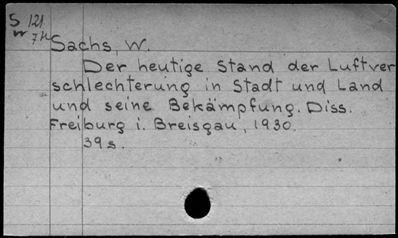 S 121
w 7h
Sachs, W.
Der heutige Stand der Luftver
schlechterung in Stadt und Land
und seine Bekämpfung. Diss.
Freiburg i. Breisgau, 1930.
39 s.